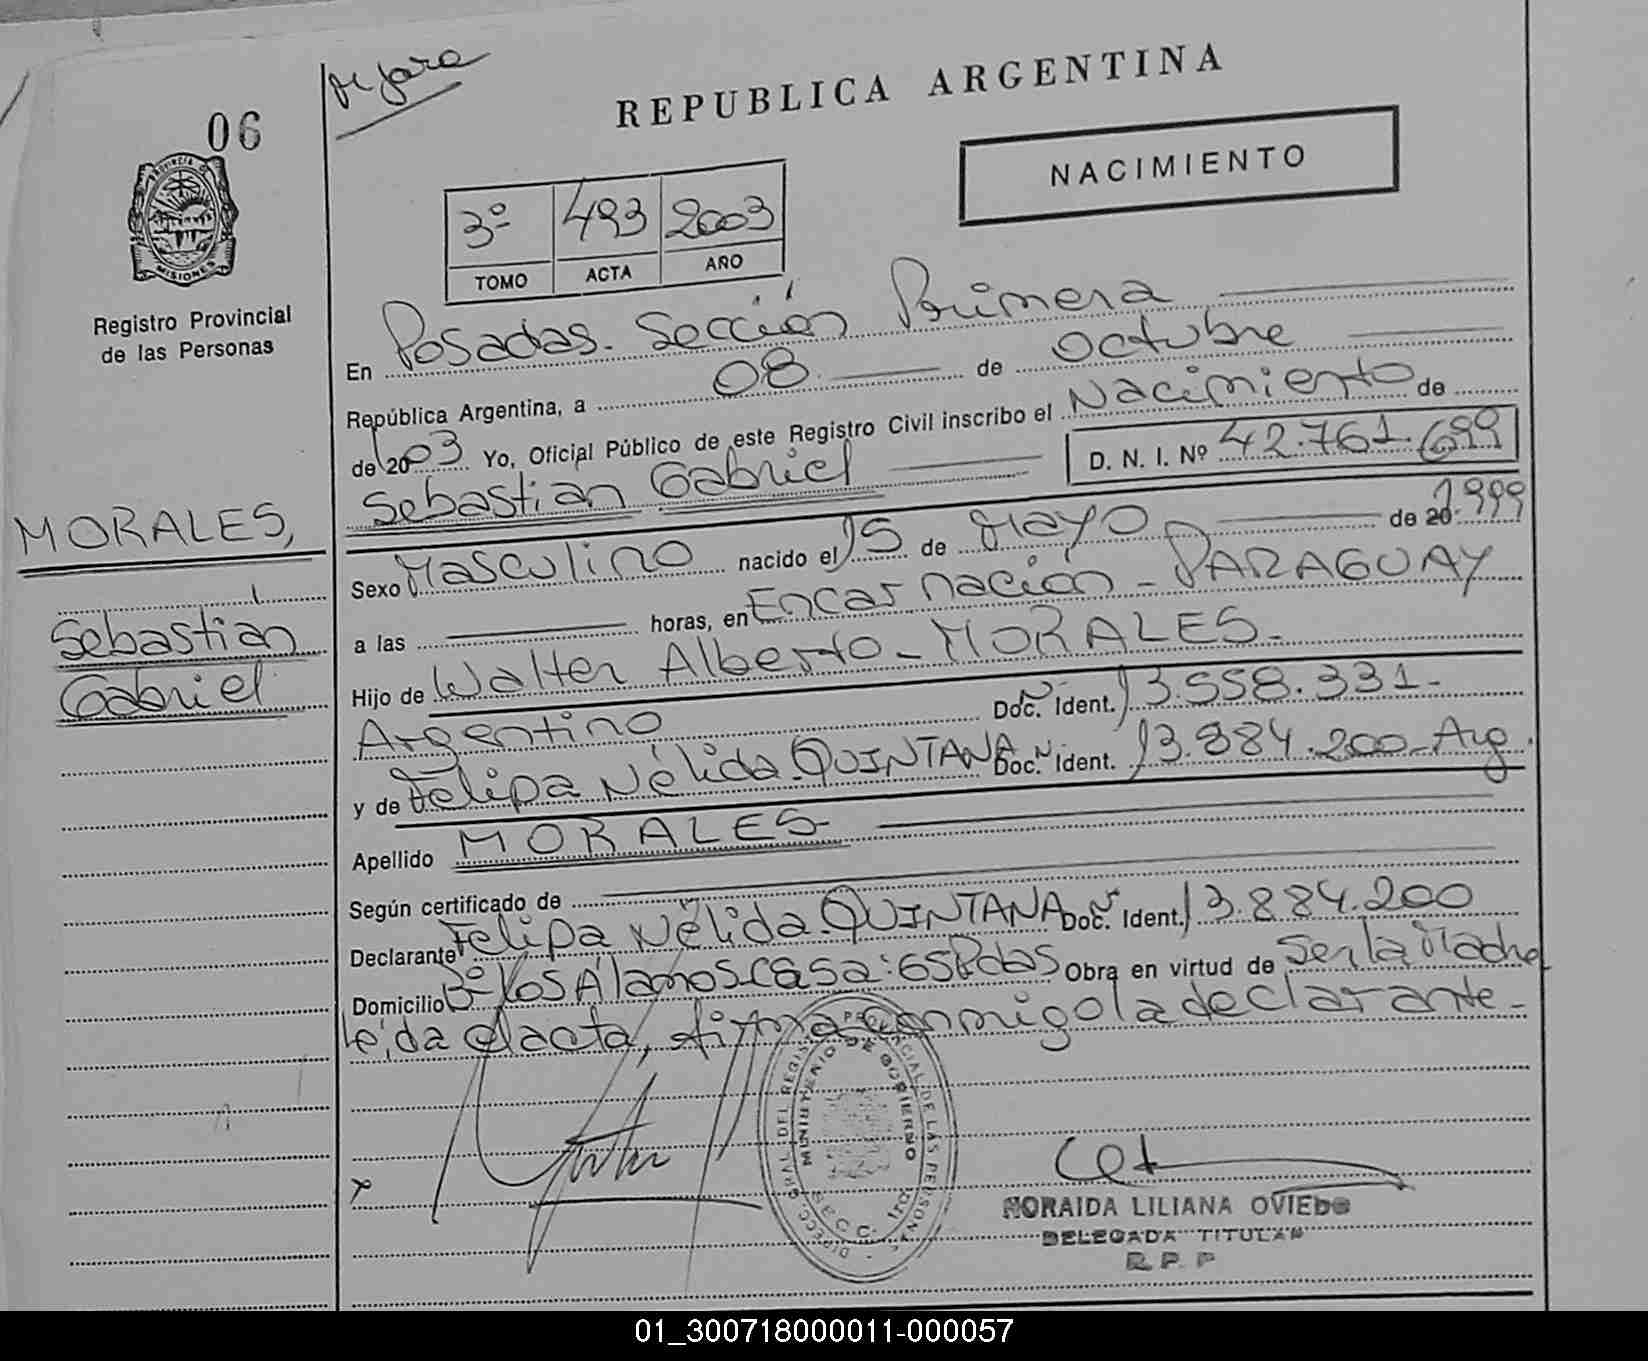 06
REPUBLICA ARGENTINA
NACIMIENTO
PROVINCIA DE
MISIONES
Registro Provincial
de las Personas
3º 493 2003
TOMO ACTA AÑO
En Posadas. Sección Primera
República Argentina, a 08 de octubre
de 2003 Yo, Oficial Público de este Registro Civil inscribo el Nacimiento de
Sebastián Gabriel D. N. I. Nº 42.761.699
MORALES,
Sebastián
Gabriel
Sexo Masculino nacido el 15 de Mayo de 20 1999
a las horas, en Encarnación - PARAGUAY
Hijo de Walter Alberto - MORALES.
Argentino Doc. Ident. 13.558.331-
y de Felipa Nélida QUINTANA Doc. Ident. 13.884.200 - Arg.
Apellido MORALES-
Según certificado de
Declarante Felipa Nélida QUINTANA Doc. Ident. 13.884.200
Domicilio Bº Los Alamos Casa: 65 Pdas Obra en virtud de Ser la Madre
leída el acta, firma conmigo la declarante -
DIRECC. GRAL. DEL REGIST. PROVINCIAL DE LAS PERSONAS
MINISTERIO DE GOBIERNO
SECC. 1RA.
x
NORAIDA LILIANA OVIEDO
DELEGADA TITULAR
R. P. P
01_300718000011-000057